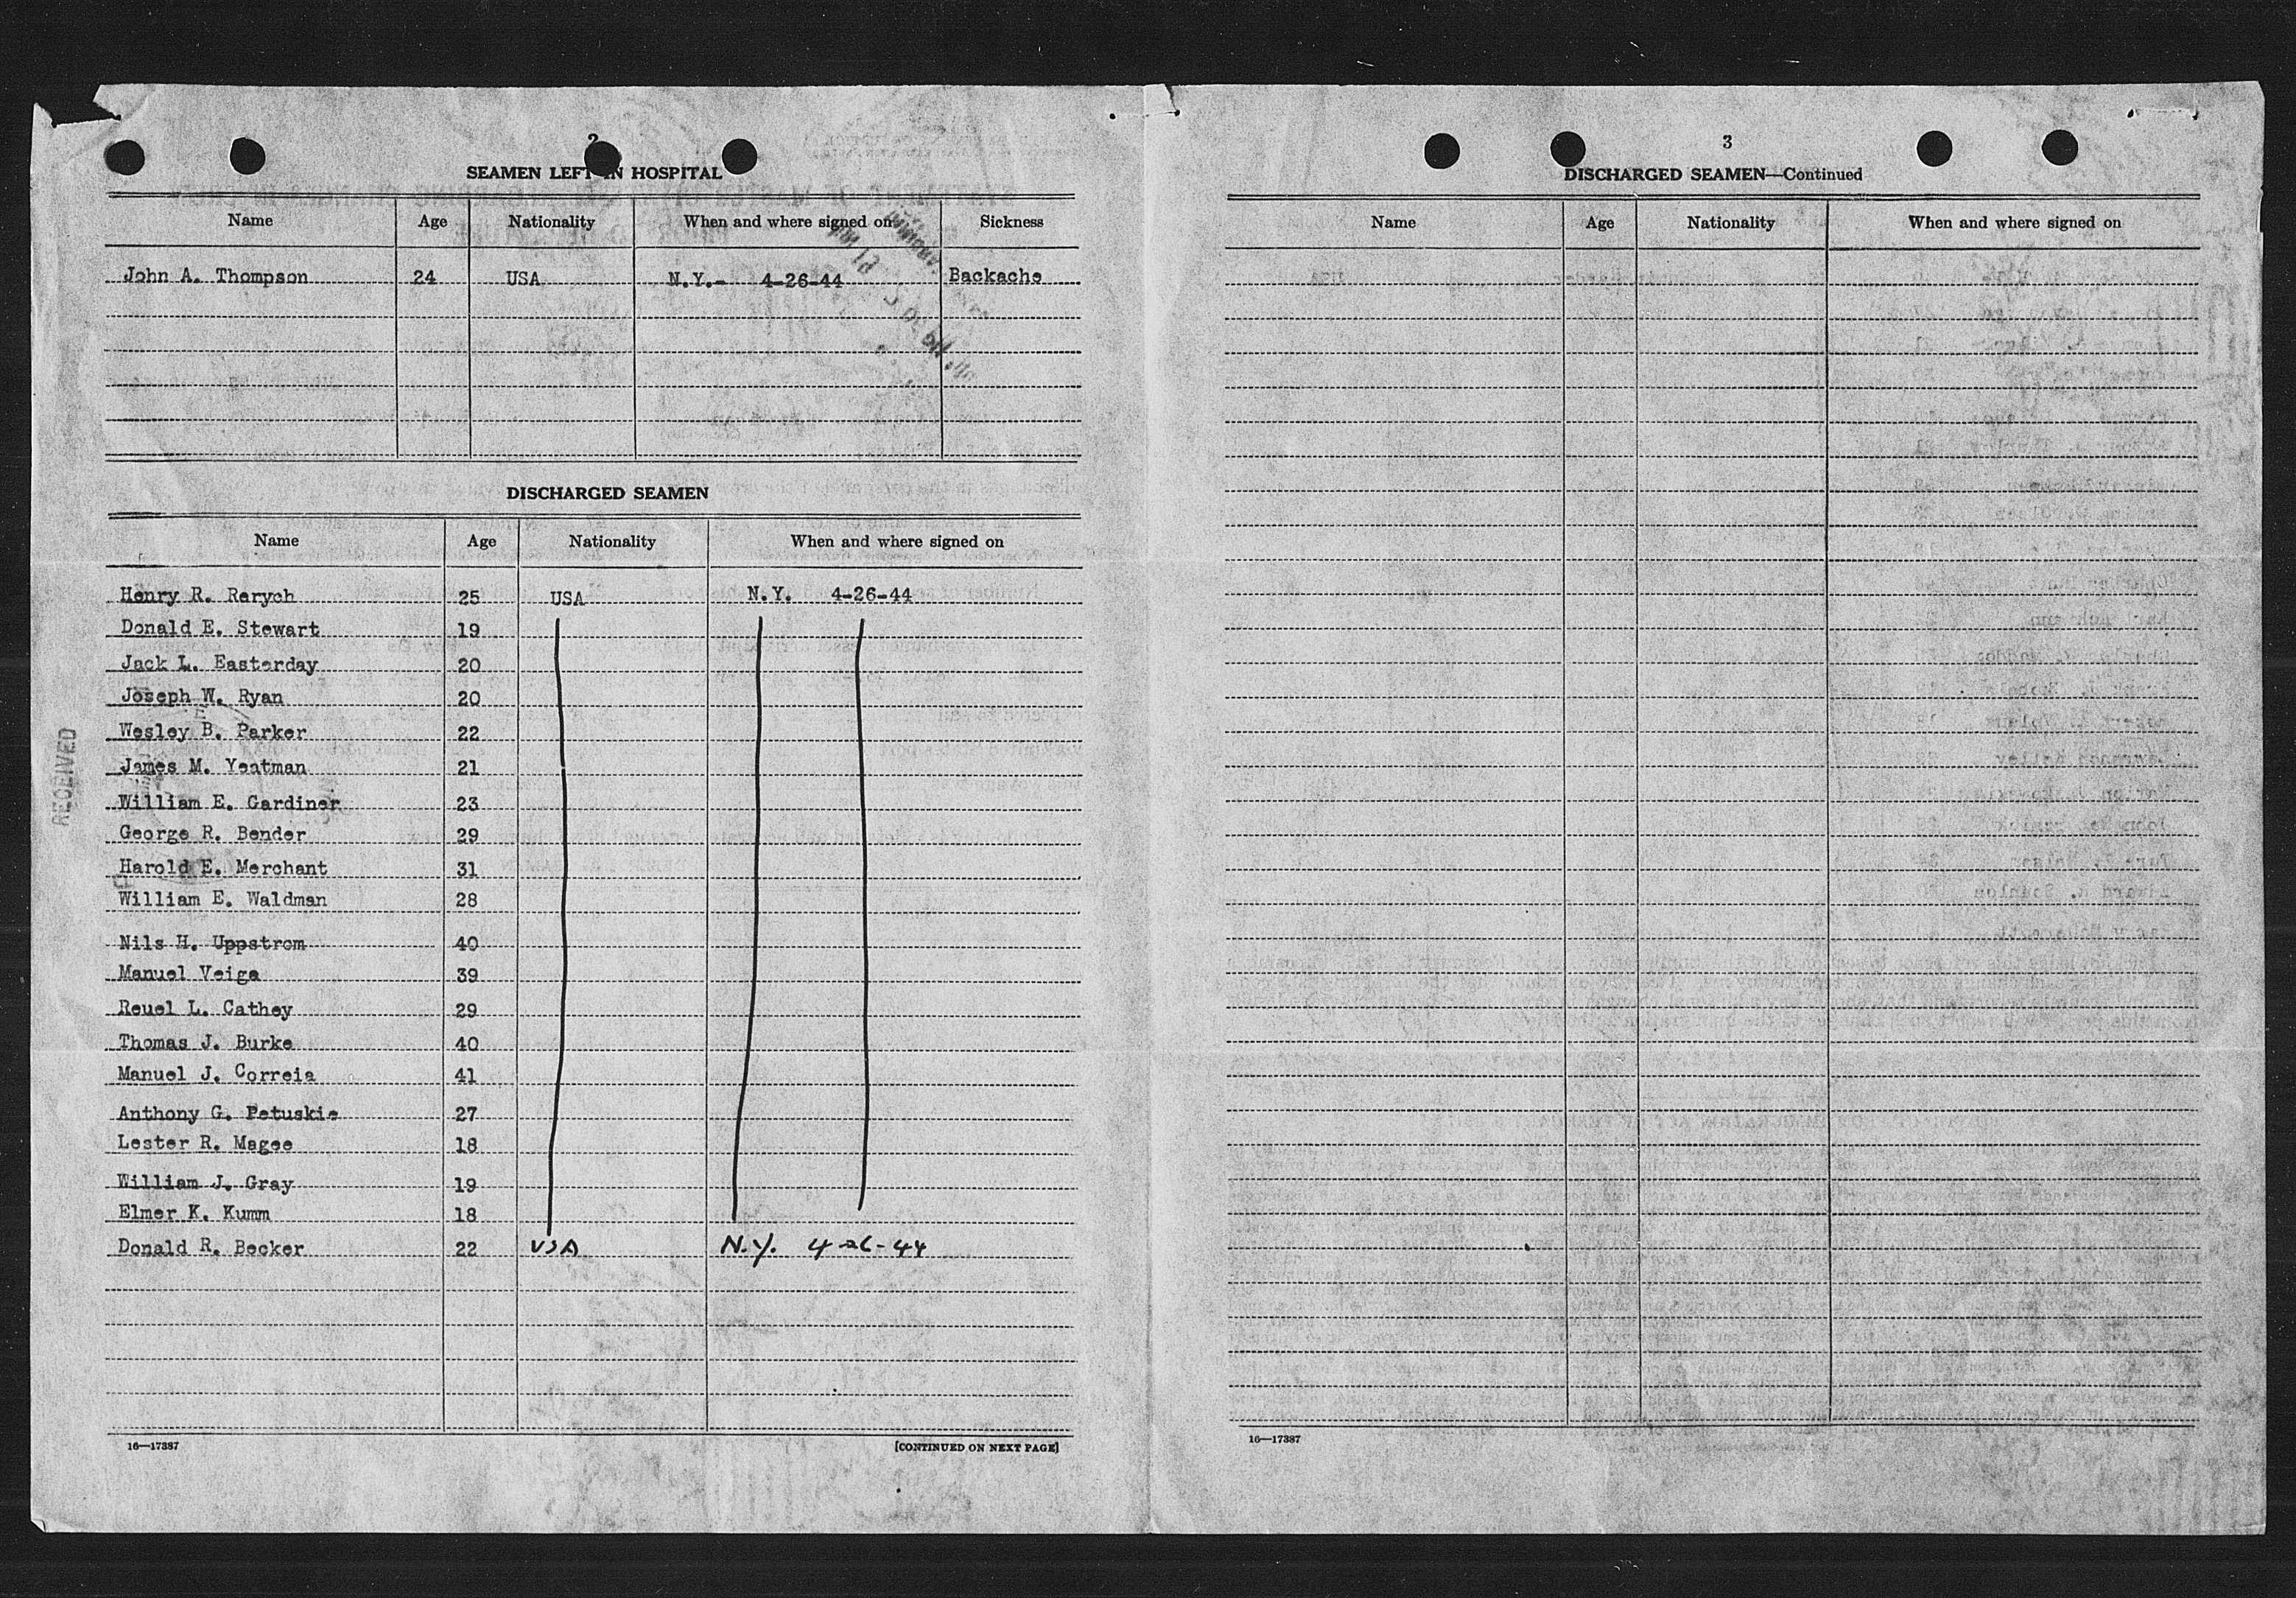 2
SEAMEN LEFT IN HOSPITAL
Name Age Nationality When and where signed on Sickness
John A. Thompson 24 USA N.Y.- 4-26-44 Backache
DISCHARGED SEAMEN
Name Age Nationality When and where signed on
Henry R. Rerych 25 USA N.Y. 4-26-44
Donald E. Stewart 19
Jack L. Easterday 20
Joseph W. Ryan 20
Wesley B. Parker 22
James M. Yeatman 21
William E. Gardiner 23
George R. Bender 29
Harold E. Merchant 31
William E. Waldman 28
Nils H. Uppstrom 40
Manuel Veiga 39
Reuel L. Cathey 29
Thomas J. Burke 40
Manuel J. Correia 41
Anthony G. Petuskie 27
Lester R. Magee 18
William J. Gray 19
Elmer K. Kumm 18
Donald R. Becker 22 USA N.Y. 4-26-44
16—17387 [CONTINUED ON NEXT PAGE]
RECEIVED
3
DISCHARGED SEAMEN—Continued
Name Age Nationality When and where signed on
16—17387